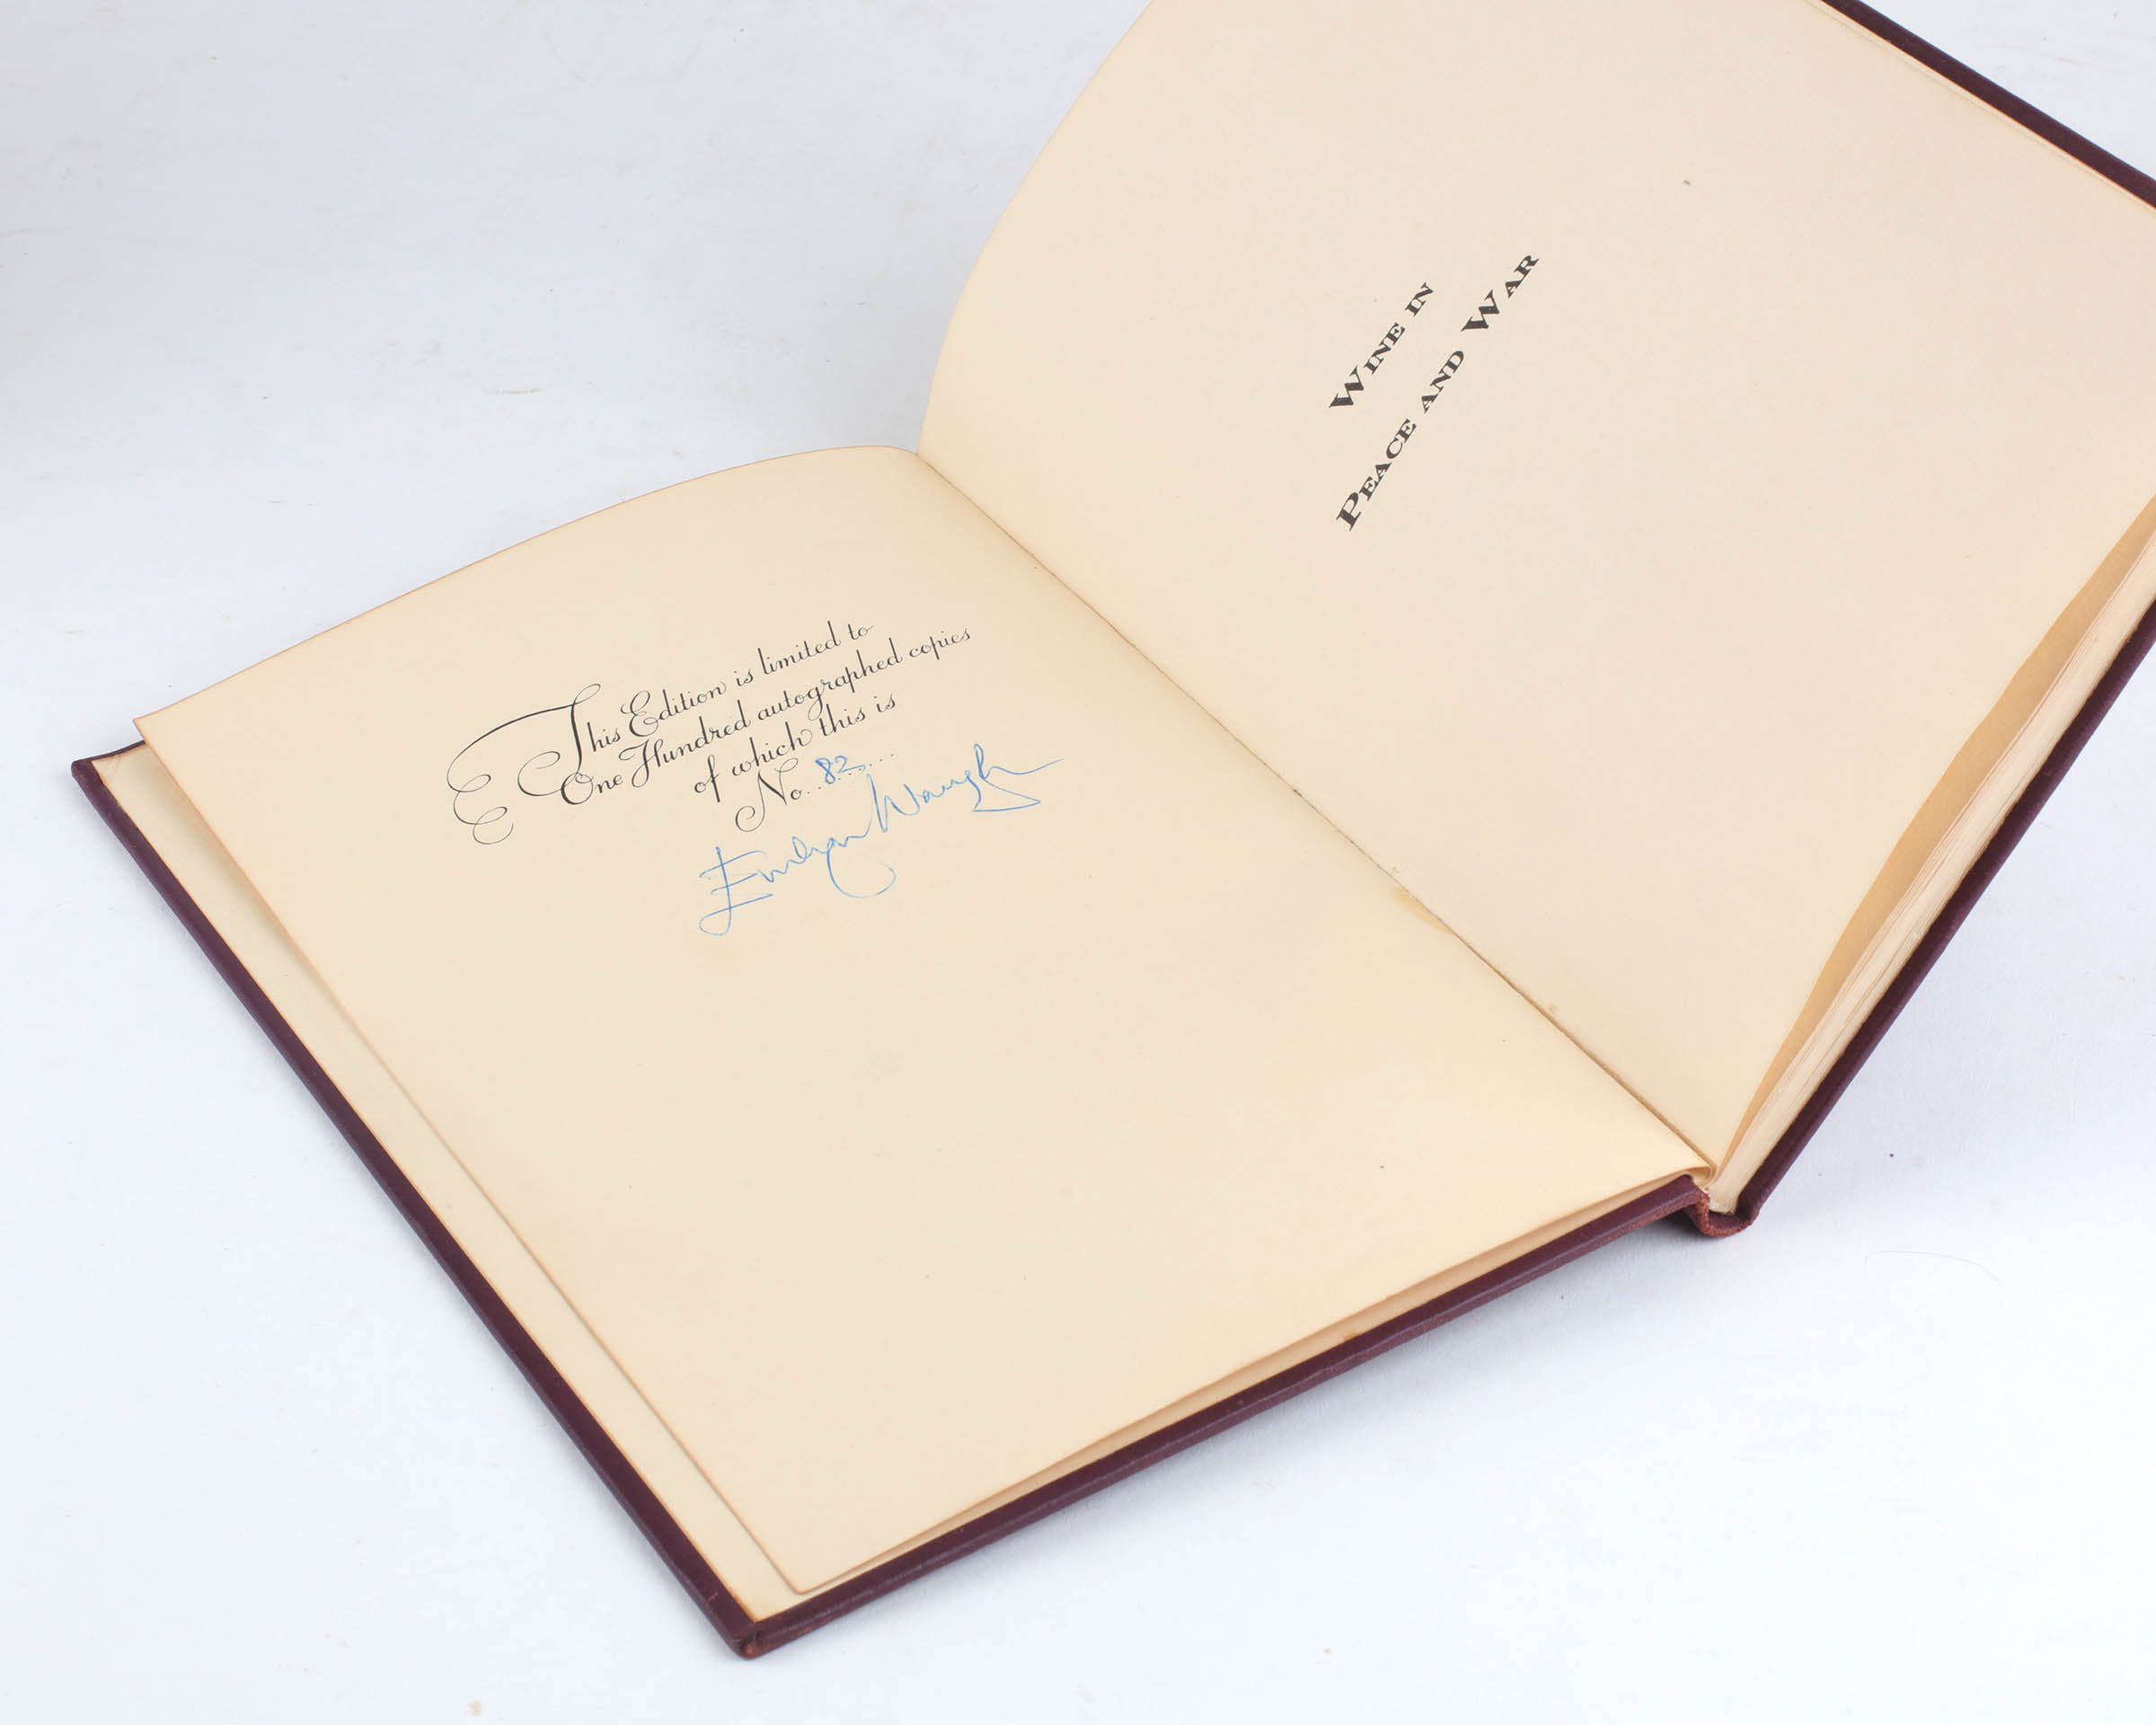 This Edition is limited to
One Hundred autographed copies
of which this is
No...82......
Evelyn Waugh
WINE IN
PEACE AND WAR